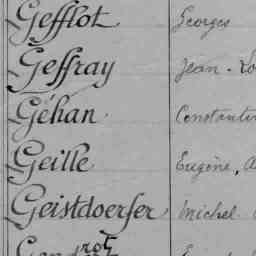 Gefflot Georges
Geffray Jean - Lo
Géhan Constantin
Geille Eugène, A
Geistdoerfer Michel